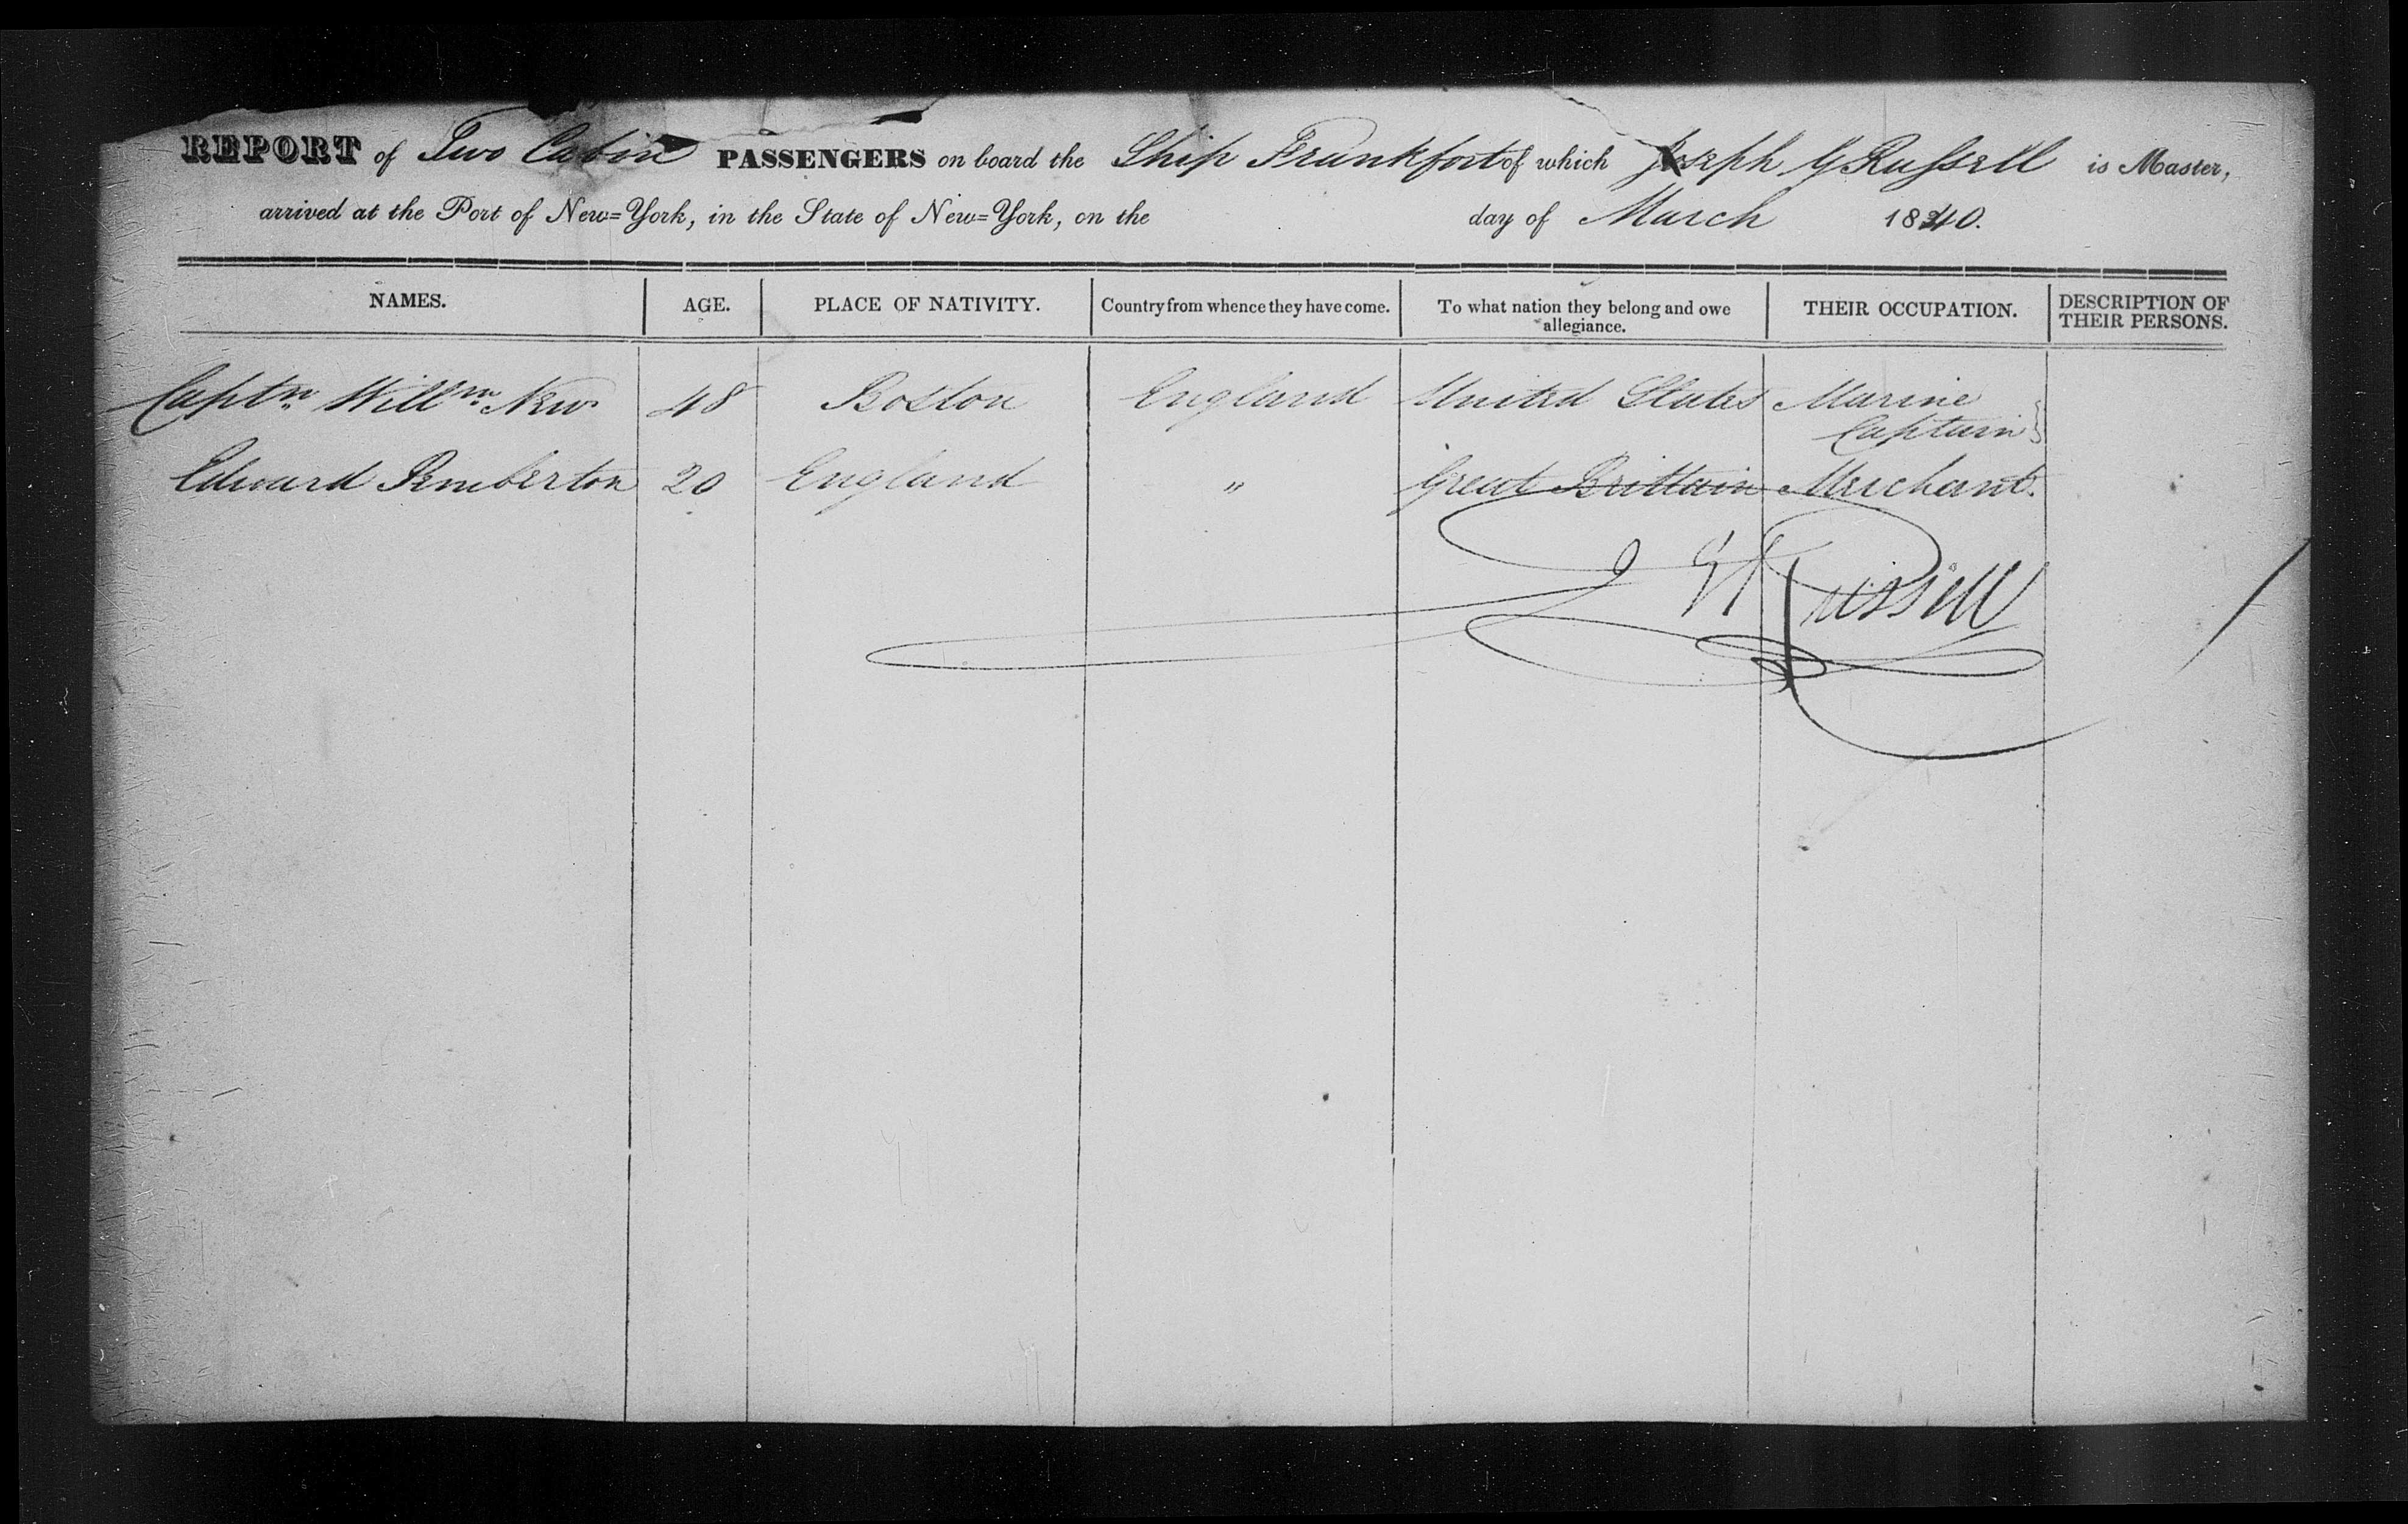 REPORT of Two Cabin PASSENGERS on board the Ship Frankfort of which Joseph G Russell is Master,
arrived at the Port of New=York, in the State of New=York, on the day of March 1840.
NAMES. AGE. PLACE OF NATIVITY. Country from whence they have come. To what nation they belong and owe allegiance. THEIR OCCUPATION. DESCRIPTION OF THEIR PERSONS.
Captn Willm New 48 Boston England United States Marine Captain
Edward Pemberton 20 England " Great Brittain Merchant.
J G Russell